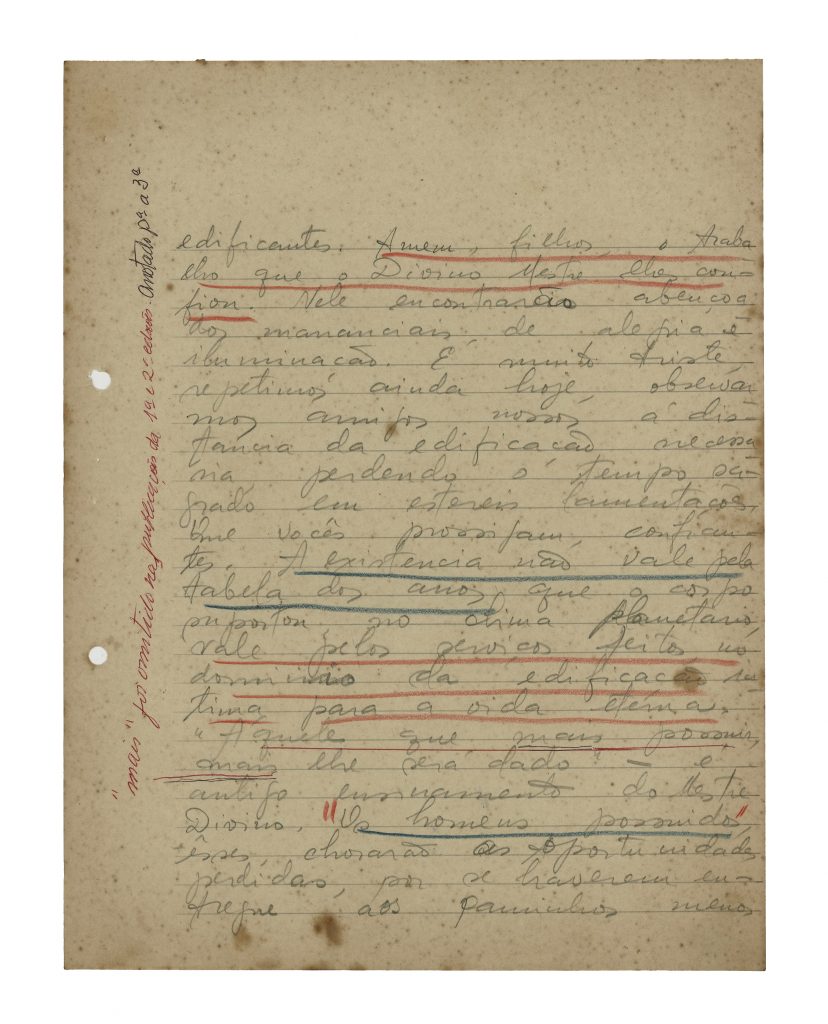 edificantes. Amem, filhos, o traba
lho que o Divino Mestre lhe con-
fiou. Nele encontrarão abençoa
dos mananciais de alegria e
iluminação. É muito triste,
repetimos ainda hoje, observar
mos amigos nossos á dis-
tancia da edificação necessa
ria, perdendo o tempo sa-
grado em estereis lamentações.
Que vocês prossigam, confian-
tes. A existencia não vale pela
tabela dos anos que o corpo
suportou no clima planetario,
vale pelos serviços feitos no
dominio da edificação in-
tima para a vida eterna.
"Aquele que mais possuir,
mais lhe será dado - e
antigo ensinamento do Mestre
Divino. "Os homens possuidos",
êsses, chorarão as oportunidades
perdidas, por se haverem en-
tregue aos caminhos menos
"mais" foi omitido na publicação da 1ª e 2ª edições. Anotado pª a 3ª